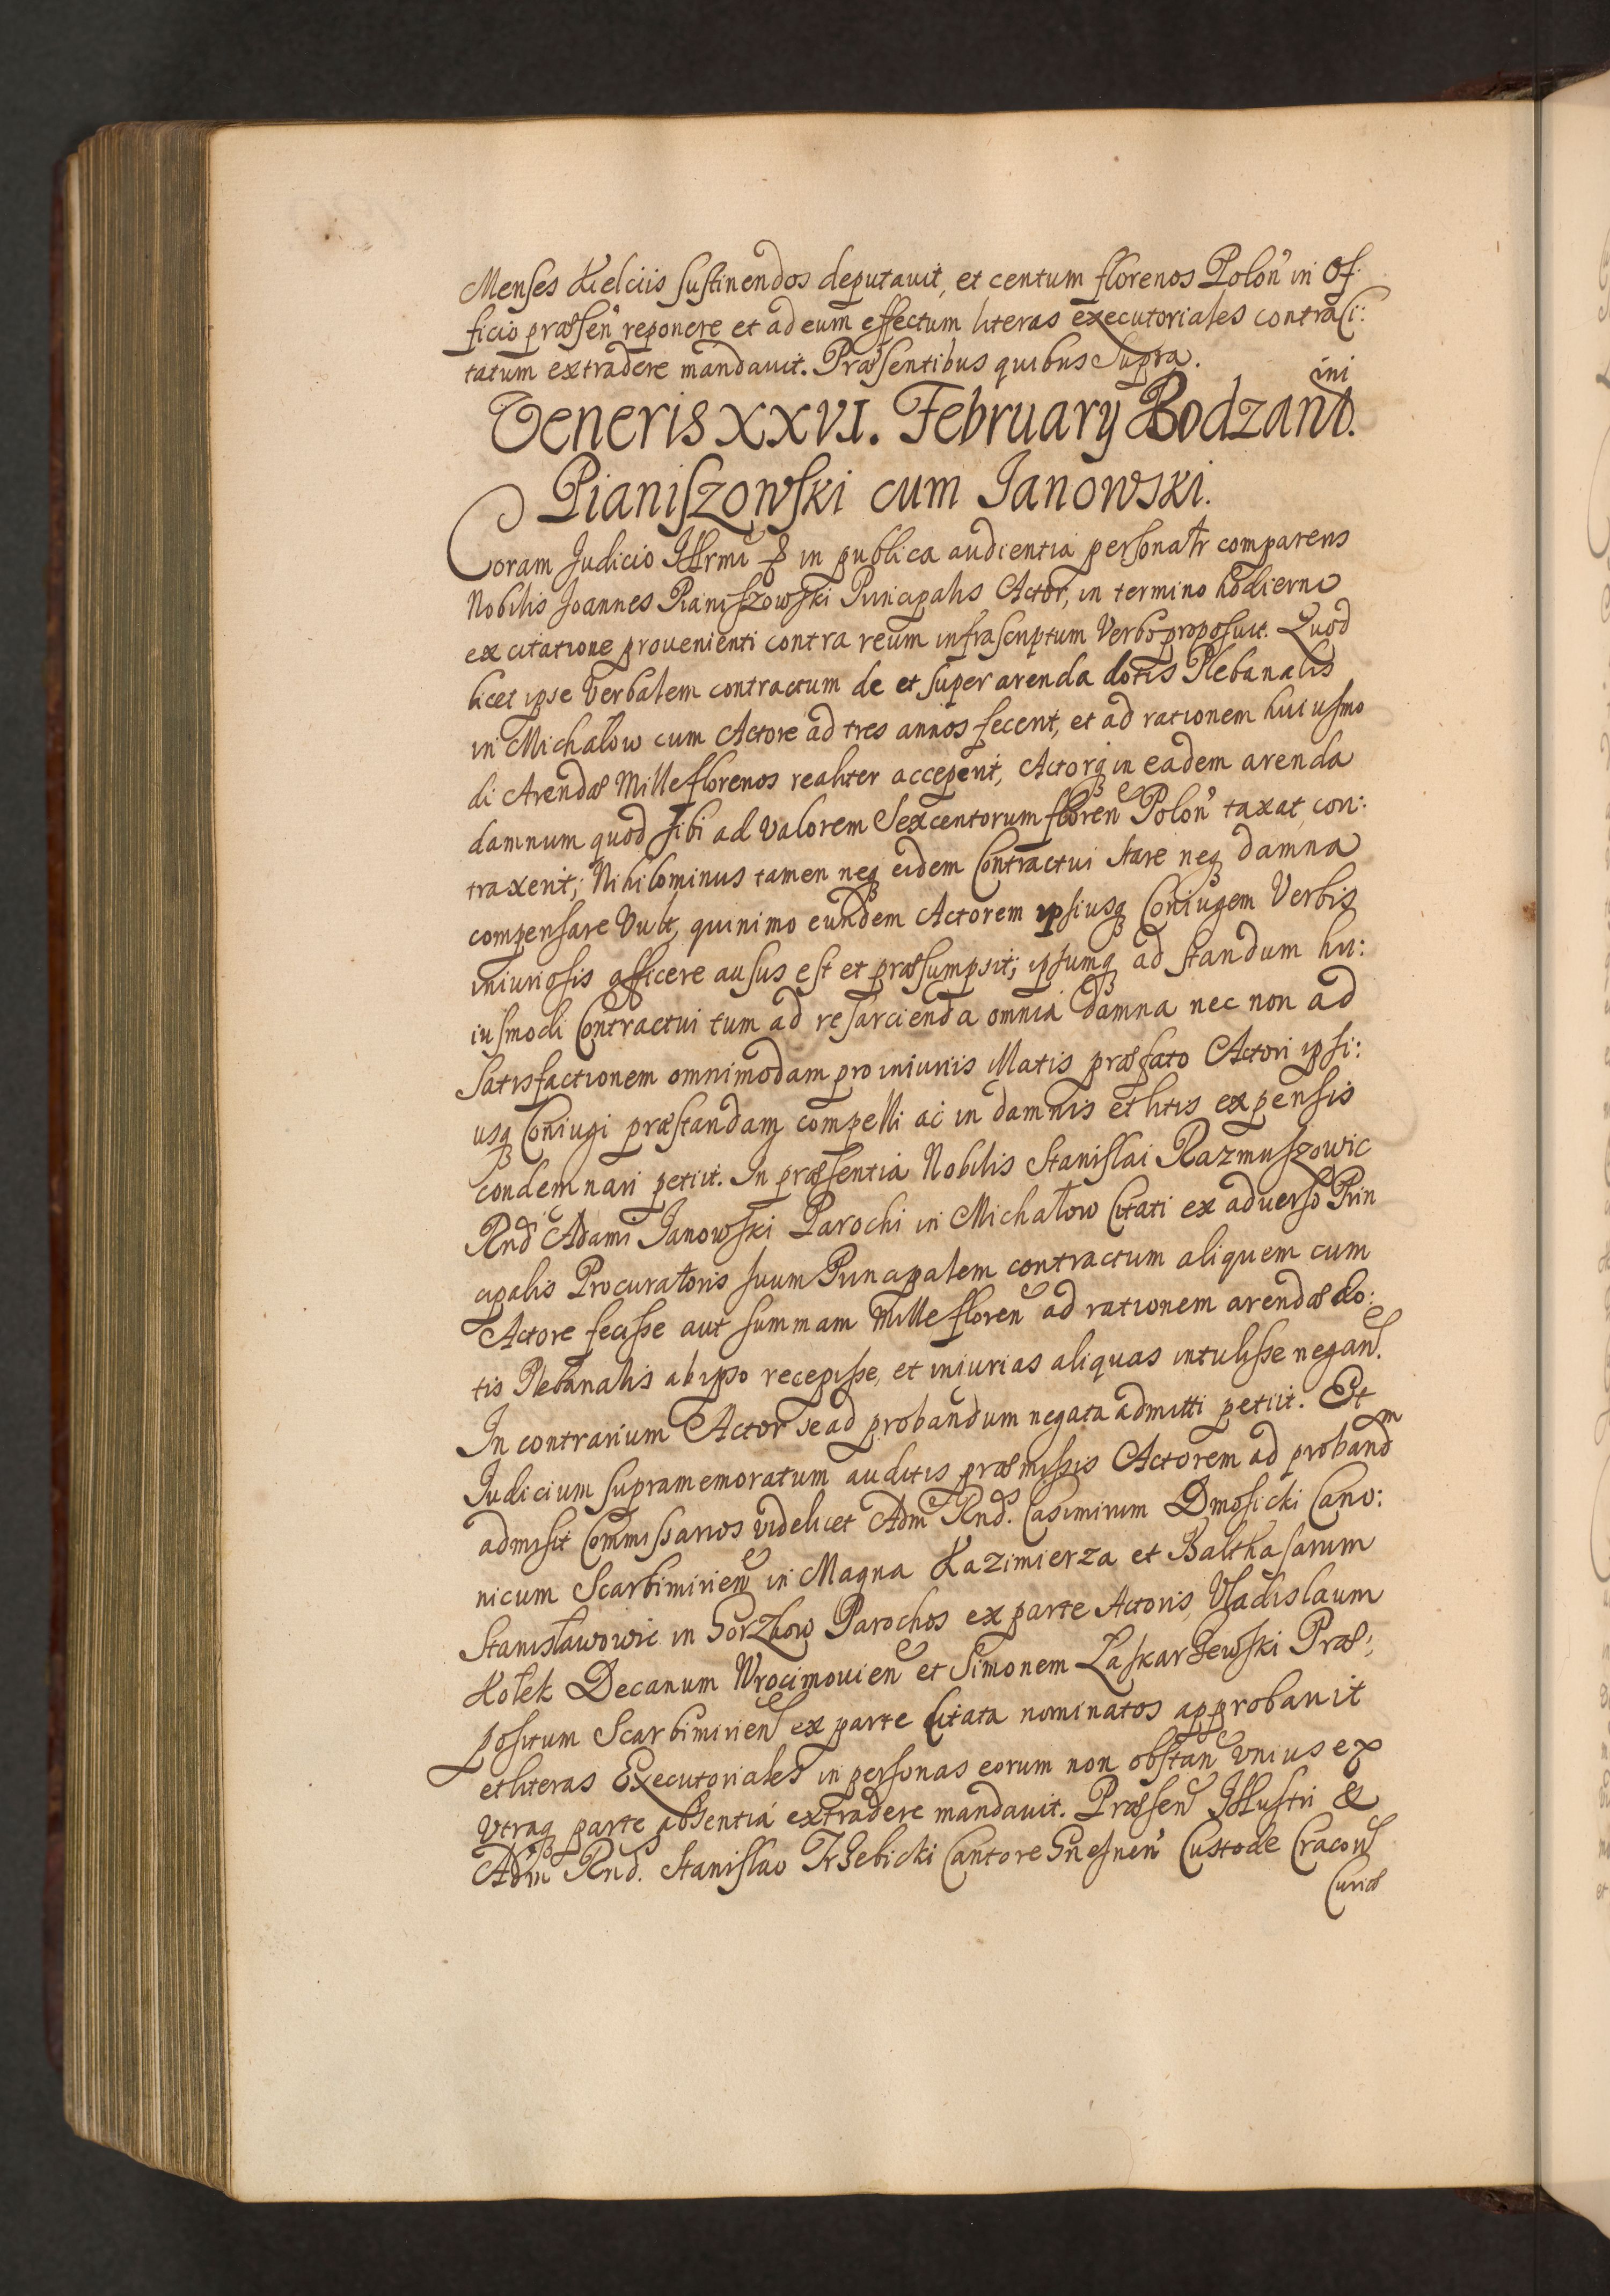 Menses Kielciis sustinendos deputauit, et centum florenos Polon in Of:
ficio præsen reponere et ad eum effectum literas executoriales contra Ci:
tatum extradere mandauit. Præsentibus quibus supra.
Veneris XXVI. February Bodzantini.
Pianiszowski cum Janowski.
Coram Judicio Illrmi & in publica audientia personatr comparens
Nobilis Joannes Pianiszowski Principalis Actor, in termino hodierno
ex citatione prouenienti contra reum infrascriptum Verbo proposuit. Quod
licet ipse Verbalem contractum de et super arenda dotis Plebanalis
in Michałow cum Actore ad tres annos fecerit, et ad rationem huiusmo
di Arendæ Mille florenos realiter acceperit, Actorq in eadem arenda
damnum quod sibi ad valorem Sexcentorum floren Polon taxat, con:
traxerit; Nihilominus tamen neq eidem Contractui stare neq damna
compensare Vult, quinimo eundem Actorem ipsiusq Coniugem Verbis
iniuriosis afficere ausus est et præsumpsit; ipsumq ad standum hu:
iusmodi Contractui tum ad resarcienda omnia damna nec non ad
satisfactionem omnimodam pro iniuriis illatis præfato Actori ipsi:
usq Coniugi præstandam compelli ac in damnis et litis expensis
condemnari petiit. In præsentia Nobilis Stanislai Razmuszowic
Rnd Adami Janowski Parochi in Michałow Citati ex aduerso Prin
cipalis Procuratoris suum Principalem contractum aliquem cum
Actore fecisse aut summam Mille floren ad rationem arendæ do:
tis Plebanalis ab ipso recepisse, et iniurias aliquas intulisse negan.
In contrarium Actor se ad probandum negata admitti petiit. Et
Judicium supramemoratum auditis præmissis Actorem ad proband m
admisit Commissarios videlicet Adm Rnd. Casimirum Dmosicki Cano:
nicum Scarbimirien in Magna Kazimierza et Balthasarum
Stanisławowic in Gorzkow Parochos ex parte Actoris, Vladislaum
Kołek Decanum Wrocimouien et Simonem Laskarzewski Præ:
positum Scarbimirien ex parte Citata nominatos approbauit
et literas Executoriales in personas eorum non obstan vnius ex
vtraq parte absentia extradere mandauit. Præsen Illustri &
Adm Rnd. Stanislao Trzebicki Cantore Gnesnen Custode Cracon
Curiæ